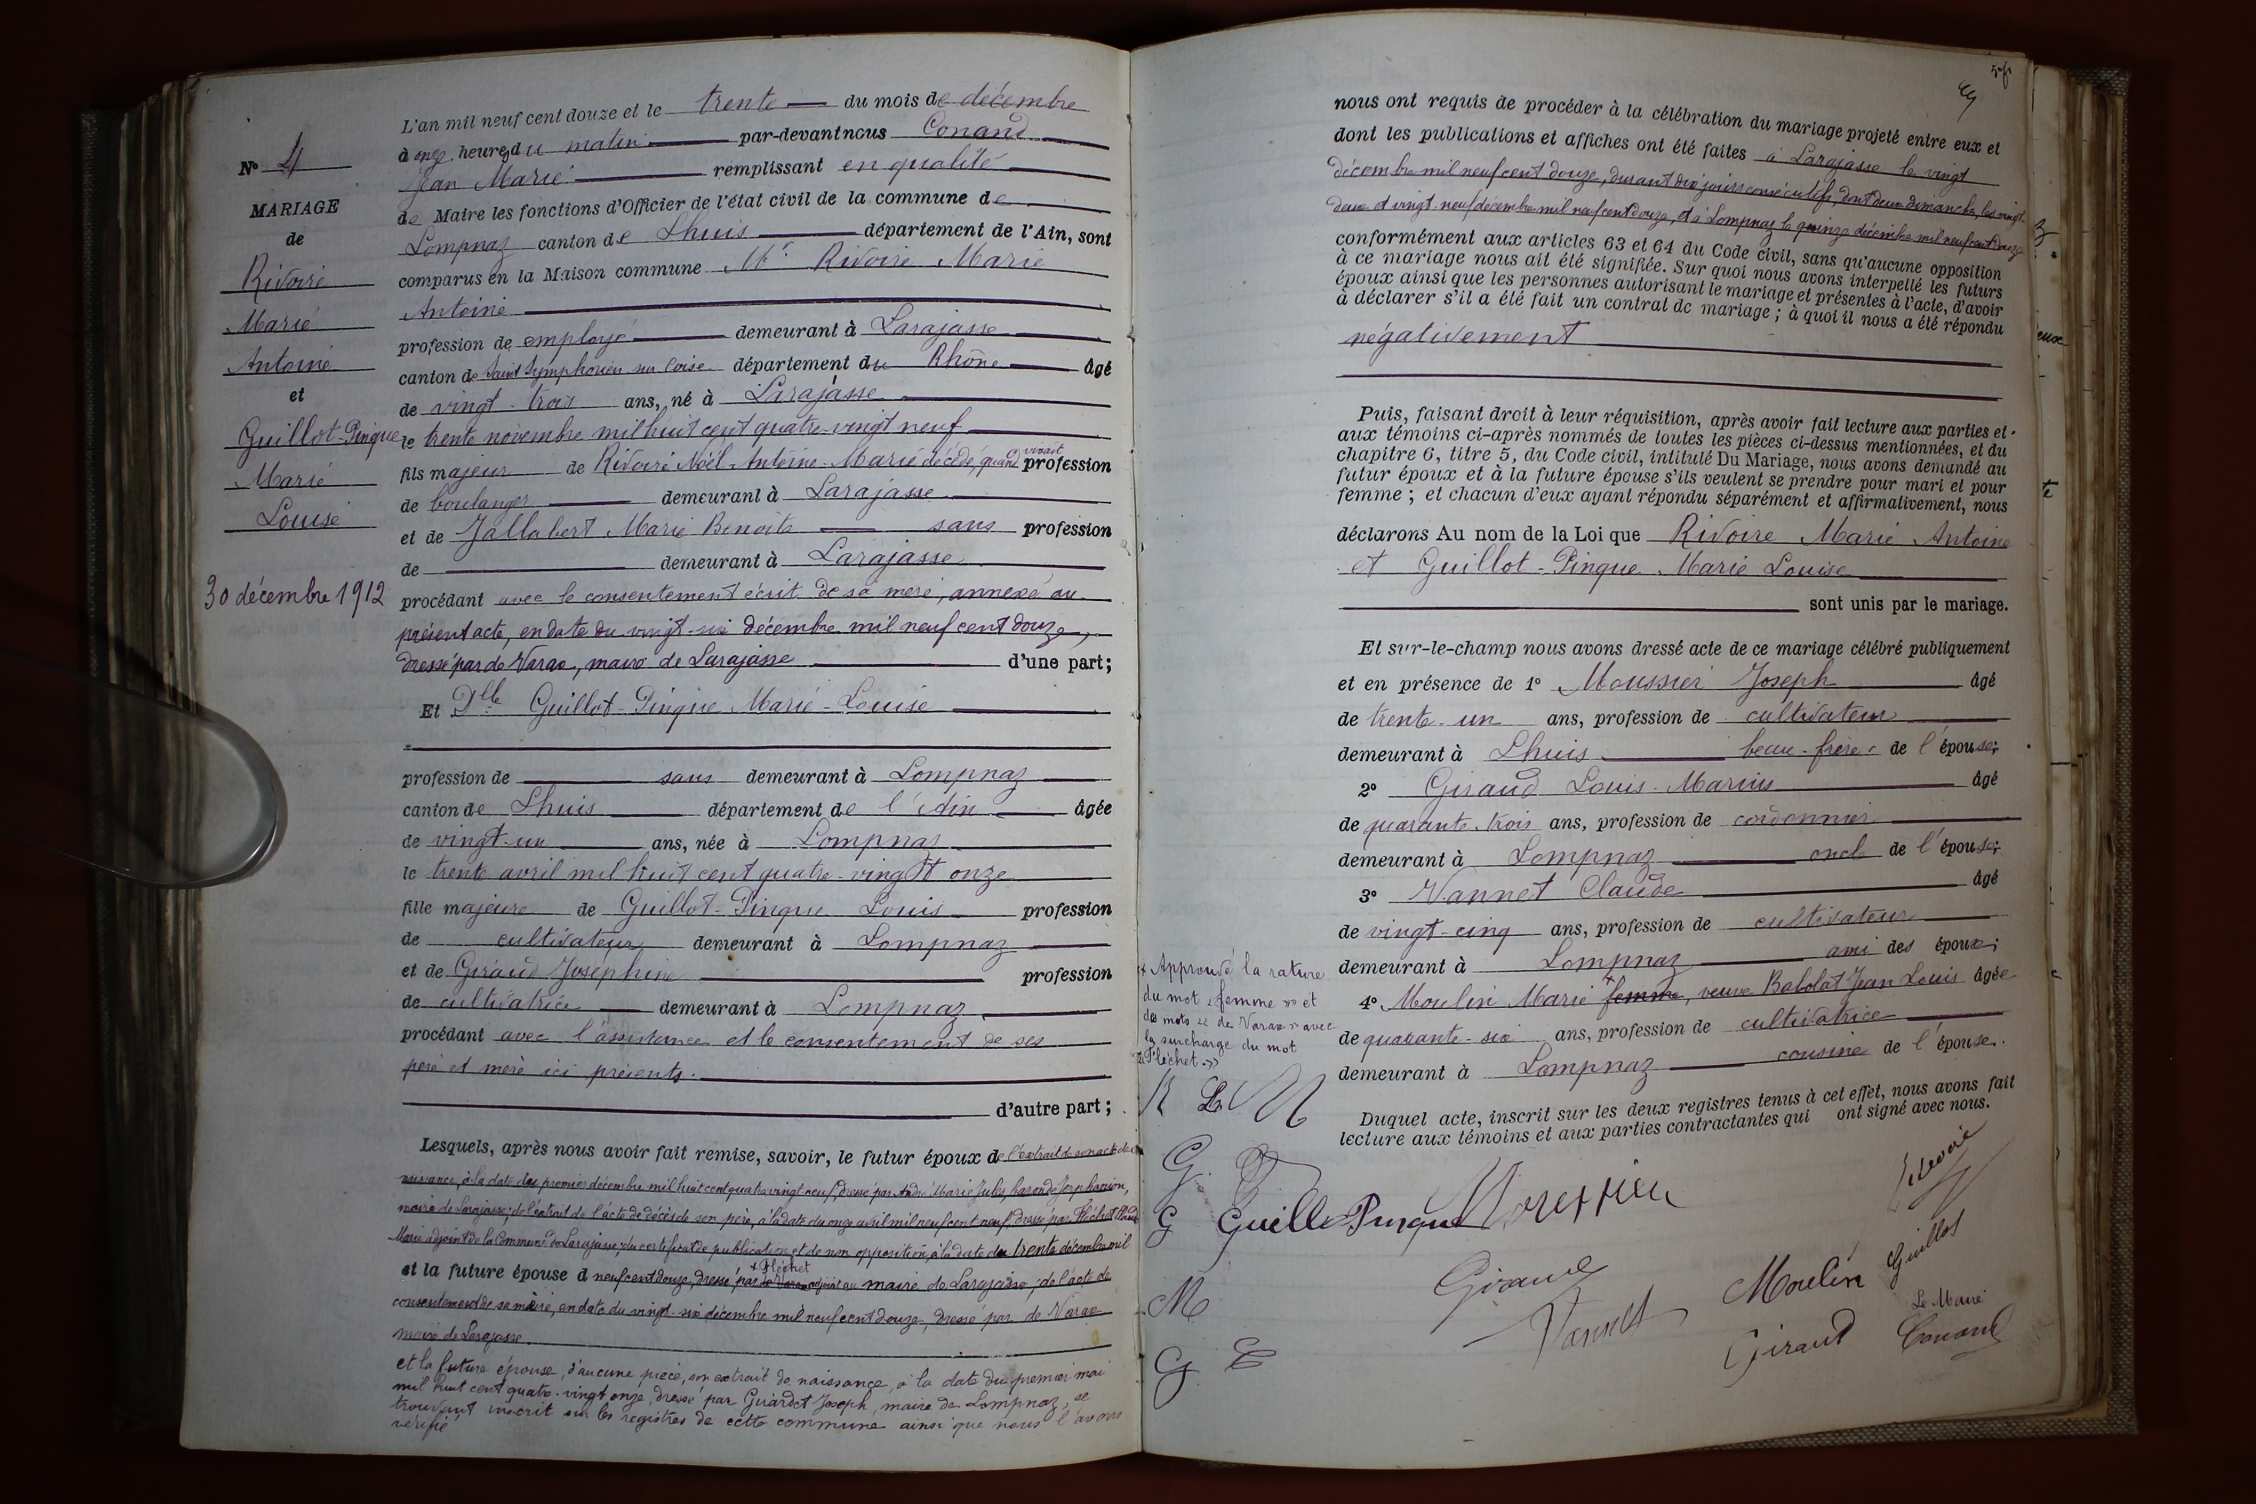 N° 4
MARIAGE
de
Rivoire
Marie
Antoine
et
Guillot-Pinque
Marie
Louise
30 décembre 1912
L'an mil neuf cent douze et le trente du mois de décembre
à onze heures du matin par-devant nous Conand
Jean Marie remplissant en qualité
de Maire les fonctions d'Officier de l'état civil de la commune de
Lompnaz canton de Lhuis département de l'Ain, sont
comparus en la Maison commune Mr Rivoire Marie
Antoine
profession de employé demeurant à Larajasse
canton de Saint Symphorien sur Coise département du Rhône âgé
de vingt-trois ans, né à Larajasse
le trente novembre mil huit cent quatre-vingt neuf
fils majeur de Rivoire Noël Antoine Marie décédé, quand vivait profession
de boulanger demeurant à Larajasse
et de Jallabert Marie Benoite sans profession
de demeurant à Larajasse
procédant avec le consentement écrit de sa mère, annexé au
présent acte, en date du vingt-six décembre mil neuf cent douze,
dressé par de Varax, maire de Larajasse d'une part;
Et Dlle Guillot-Pinque Marie-Louise
profession de sans demeurant à Lompnaz
canton de Lhuis département de l'Ain âgée
de vingt-un ans, née à Lompnaz
le trente avril mil huit cent quatre-vingt onze
fille majeure de Guillot-Pinque Louis profession
de cultivateur demeurant à Lompnaz
et de Giraud Joséphine profession
de cultivatrice demeurant à Lompnaz
procédant avec l'assistance et le consentement de ses
père et mère ici présents.
d'autre part;
Lesquels, après nous avoir fait remise, savoir, le futur époux de l'extrait de son acte de
naissance, à la date du premier décembre mil huit cent quatre vingt neuf, dressé par André Marie Jules,
maire de Larajasse; de l'extrait de l'acte de décès de son père, à la date du onze avril mil neuf cent neuf, dressé par Fléchet
Marie adjoint de la Commune de Larajasse; du certificat de publication et de non opposition, à la date du trente décembre mil
et la future épouse d neuf cent douze, dressé par de Varax + Fléchet adjoint au maire de Larajasse; de l'acte de
consentement de sa mère, en date du vingt-six décembre mil neuf cent douze, dressé par de Varax
maire de Larajasse.
et la future épouse, d'aucune pièce, son extrait de naissance, à la date du premier mai
mil huit cent quatre-vingt onze, dressé par Guiardet Joseph, maire de Lompnaz, se
trouvant inscrit sur les registres de cette commune ainsi que nous l'avons
vérifié
nous ont requis de procéder à la célébration du mariage projeté entre eux et
dont les publications et affiches ont été faites à Larajasse le vingt
décembre mil neuf cent douze, durant dix jours consécutifs, dont deux dimanches, les vingt-
deux et vingt-neuf décembre mil neuf cent douze, et à Lompnaz le quinze décembre mil neuf cent douze
conformément aux articles 63 et 64 du Code civil, sans qu'aucune opposition
à ce mariage nous ait été signifiée. Sur quoi nous avons interpellé les futurs
époux ainsi que les personnes autorisant le mariage et présentes à l'acte, d'avoir
à déclarer s'il a été fait un contrat de mariage; à quoi il nous a été répondu
négativement
Puis, faisant droit à leur réquisition, après avoir fait lecture aux parties et
aux témoins ci-après nommés de toutes les pièces ci-dessus mentionnées, et du
chapitre 6, titre 5, du Code civil, intitulé Du Mariage, nous avons demandé au
futur époux et à la future épouse s'ils veulent se prendre pour mari et pour
femme; et chacun d'eux ayant répondu séparément et affirmativement, nous
déclarons Au nom de la Loi que Rivoire Marie Antoine
et Guillot-Pinque Marie Louise
sont unis par le mariage.
Et sur-le-champ nous avons dressé acte de ce mariage célébré publiquement
et en présence de 1° Moussier Joseph âgé
de trente-un ans, profession de cultivateur
demeurant à Lhuis beau-frère de l'épouse;
2° Giraud Louis-Marius âgé
de quarante-trois ans, profession de cordonnier
demeurant à Lompnaz oncle de l'épouse;
3° Vannet Claude âgé
de vingt-cinq ans, profession de cultivateur
demeurant à Lompnaz ami des époux;
4° Moulin Marie femme, veuve Babolat Jean Louis âgée
de quarante-six ans, profession de cultivatrice
demeurant à Lompnaz cousine de l'épouse.
Duquel acte, inscrit sur les deux registres tenus à cet effet, nous avons fait
lecture aux témoins et aux parties contractantes qui ont signé avec nous.
+ Approuvé la rature
du mot « femme » et
des mots « de Varax » avec
la surcharge du mot
« Fléchet. »
Guillo Pinque
Moussier
Rivoire
Guillot
Giraud
Vannet
Moulin
Giraud
Le Maire
Conand